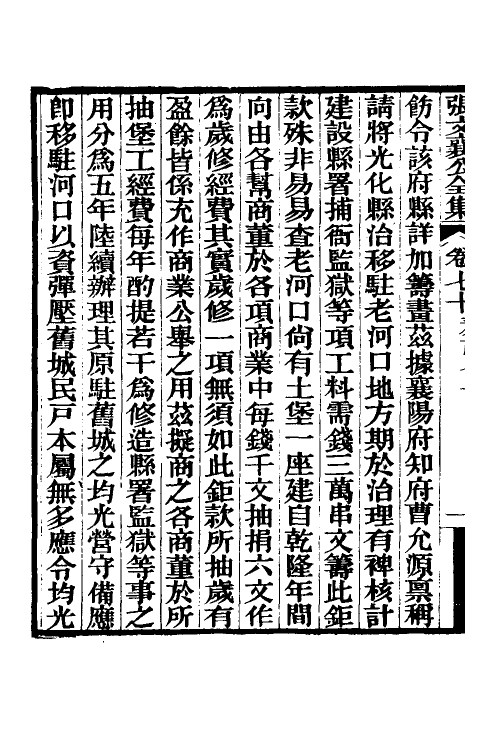 張文襄公全集 卷七十
飭令該府縣詳加籌畫茲據襄陽府知府曹允源稟稱
請將光化縣治移駐老河口地方期於治理有裨核計
建設縣署捕衙監獄等項工料需錢三萬串文籌此鉅
款殊非易易查老河口尚有土堡一座建自乾隆年間
向由各幫商董於各項商業中每錢千文抽捐六文作
爲歲修經費其實歲修一項無須如此鉅款所抽歲有
盈餘皆係充作商業公舉之用茲擬商之各商董於所
抽堡工經費每年酌提若干爲修造縣署監獄等事之
用分爲五年陸續辦理其原駐舊城之均光營守備應
卽移駐河口以資彈壓舊城民戸本屬無多應令均光